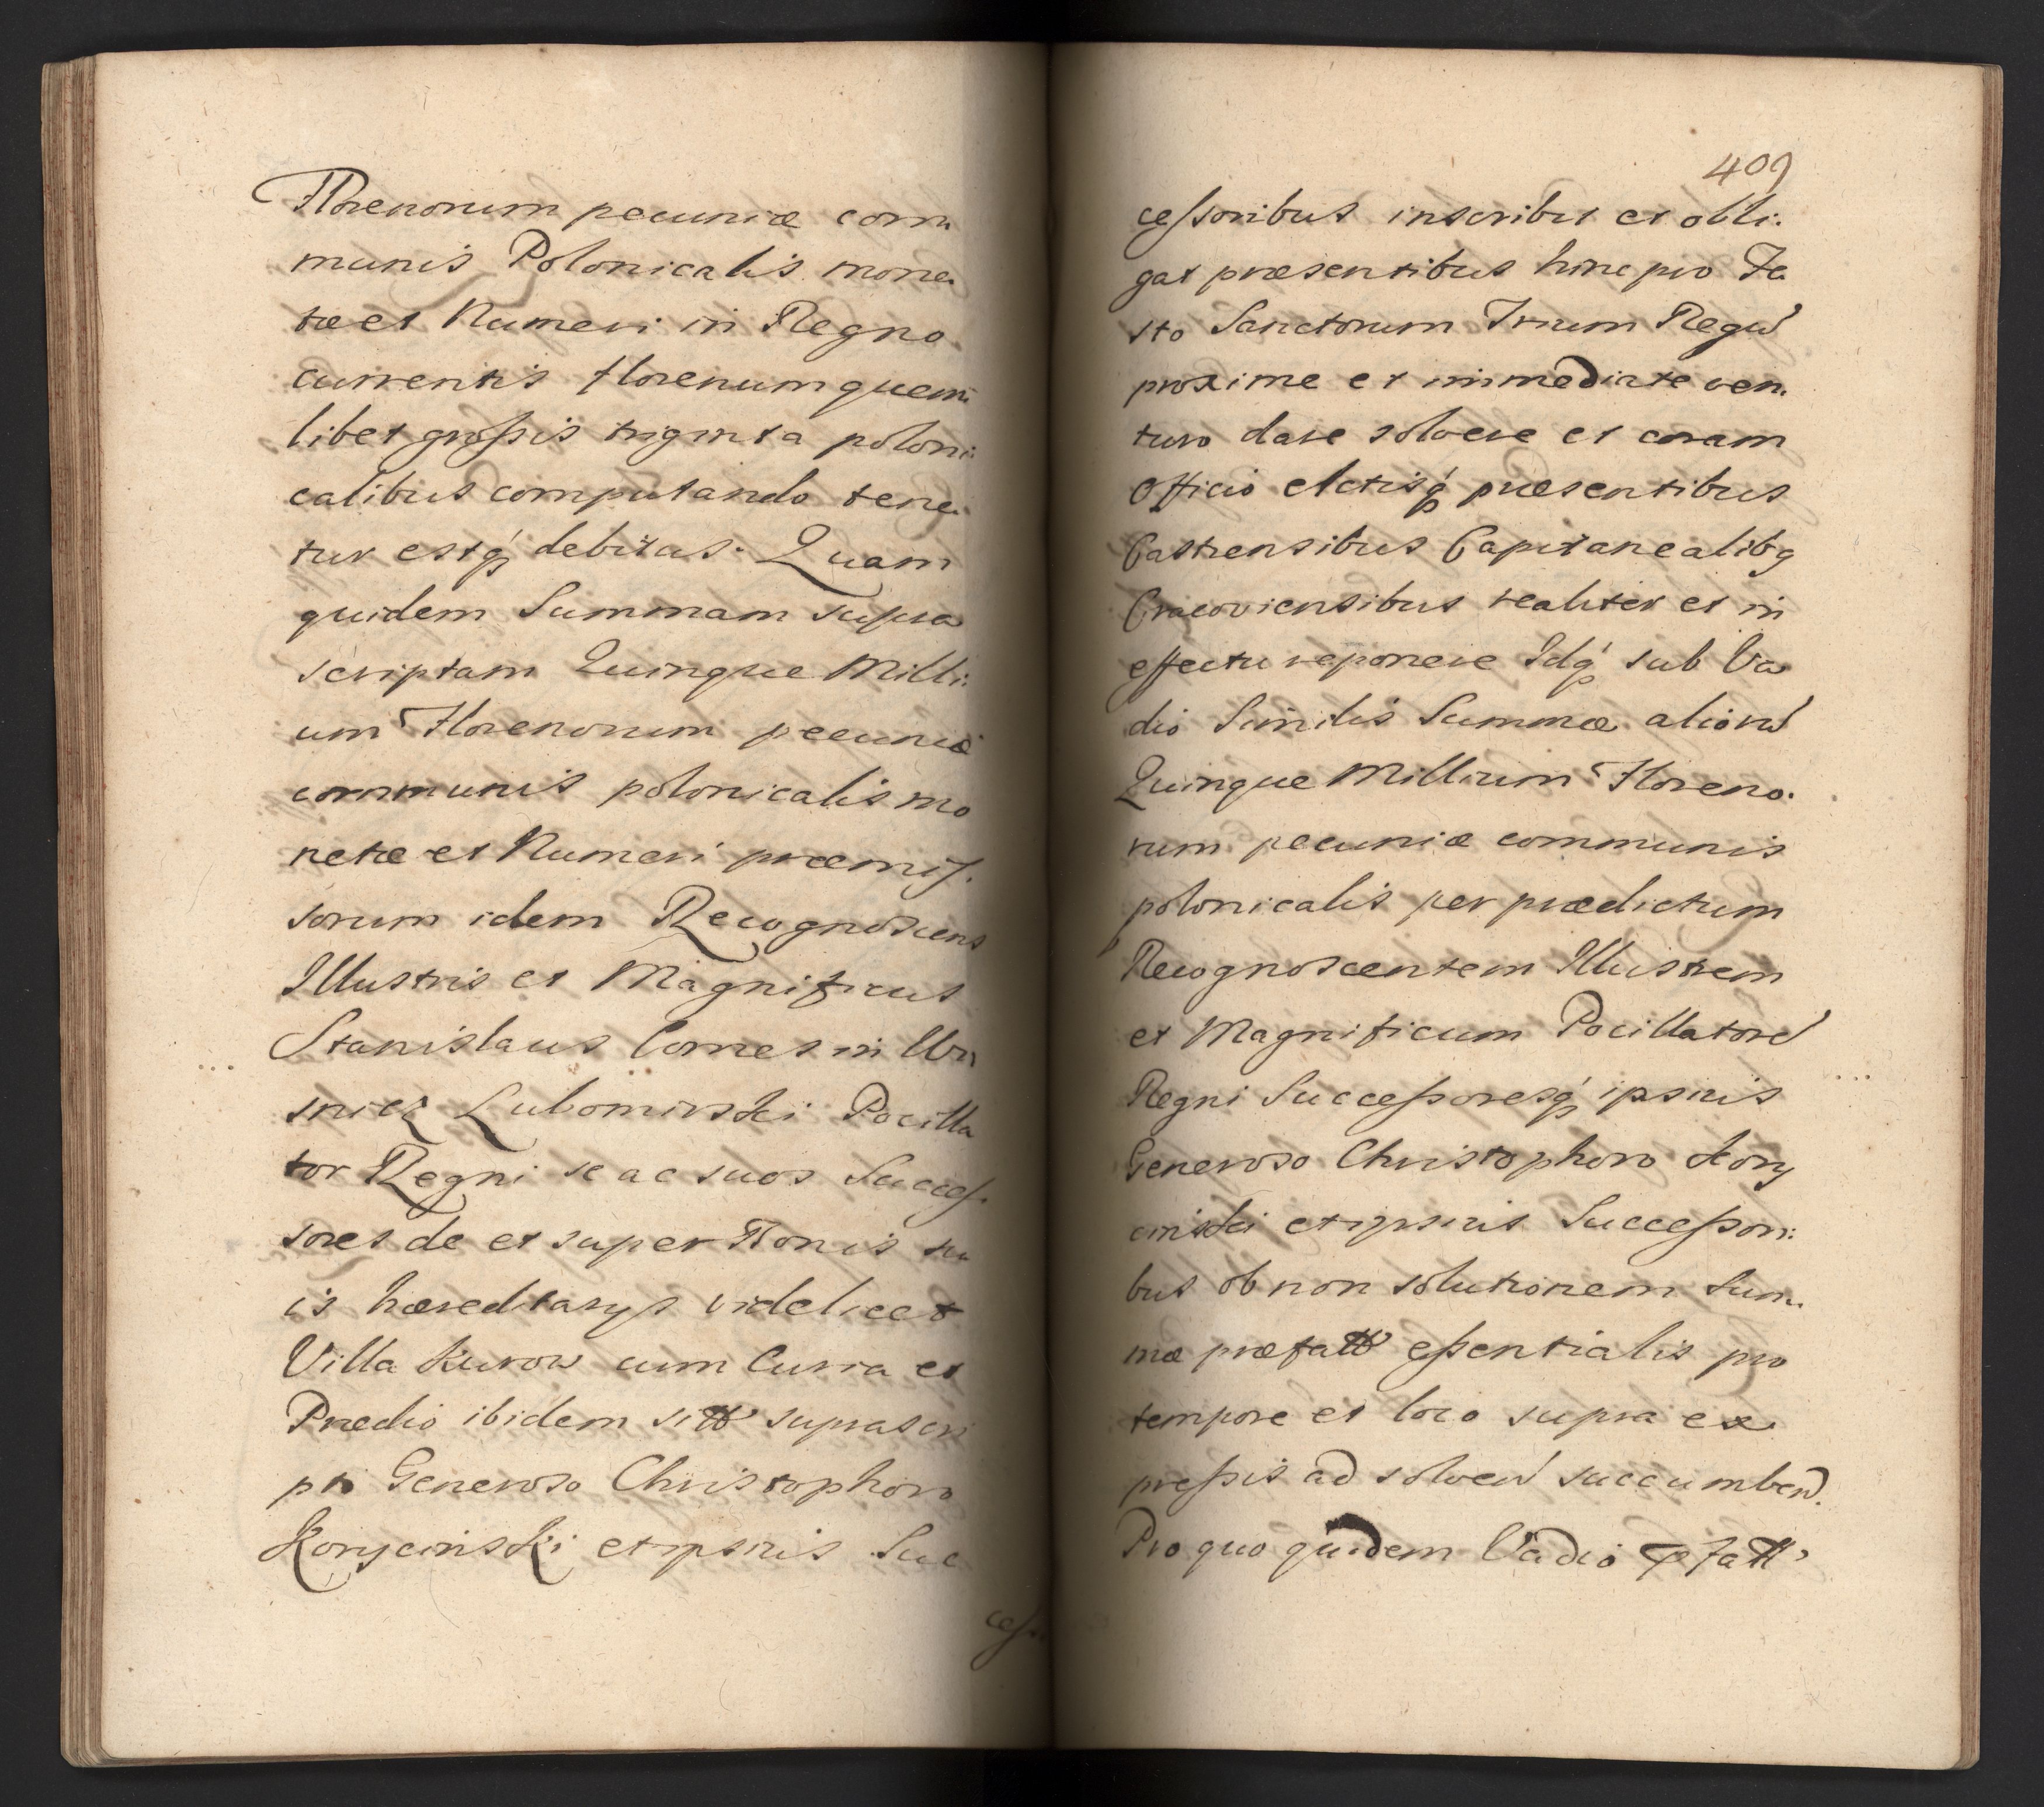 Florenorum pecuniæ com
munis Polonicalis mone
tæ et Numeri in Regno
currentis florenum quem
libet grossis triginta poloni
calibus computando tene
tur estq́ debitus. Quam
quidem Summam supra
scriptam Quinque Milli:
um Florenorum pecuniæ
communis polonicalis mo
netæ et Numeri præmis.
sorum idem Recognoscens
Illustris et Magnificus
Stanislaus Comes in Wi
snicz Lubomirski Pocilla
tor Regni se ac suos Succes.
sores de et super Bonis su
is hæreditarys videlicet
Villa Kurow cum Curia et
Prædio ibidem sitt suprascri
pti Generoso Christophoro
Korycinski et ipsius Suc
cess.
409
cessoribus inscribit et obli:
gat præsentibus hinc pro Fe
sto Sanctorum Trium Regũ
proxime et immediate ven.
turo dare solvere et coram
Officio Actisq́ præsentibus
Castrensibus Capitanealibq
Cracoviensibus realiter et in
effectu reponere Idq́ sub Va
dio Similis Summæ aliorũ
Quinque Millium Floreno.
rum pecuniæ communis
polonicalis per prædictum
Recognoscentem Illustrem
et Magnificum Pocillatorẽ
Regni Successoresq́ ipsius
Generoso Christophoro Kory
cinski et ipsius Successori:
bus ob non solutionem Sum.
mæ præfatt essentialis pro
tempore et loco supra ex
pressis ad solvend succumbend.
Pro quo quidem Vadio pfatt